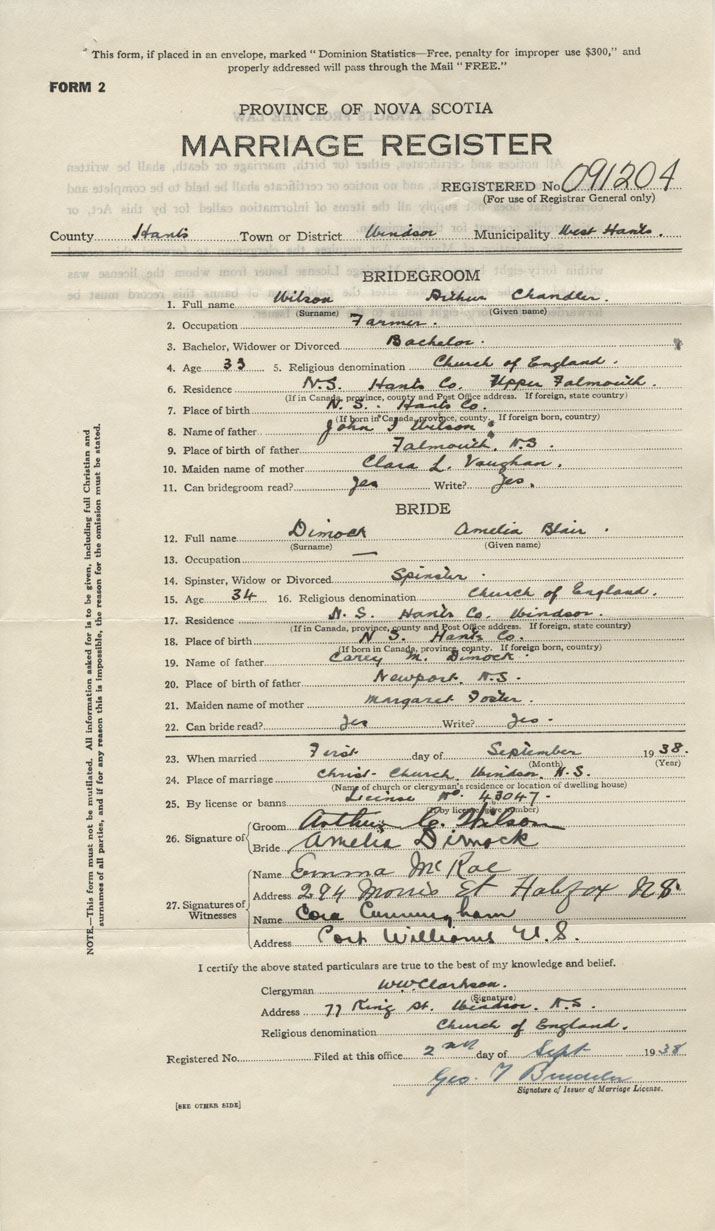 This form, if placed in an envelope, marked "Dominion Statistics—Free, penalty for improper use $300," and
properly addressed will pass through the Mail "FREE."
FORM 2
PROVINCE OF NOVA SCOTIA
MARRIAGE REGISTER
REGISTERED No. 091204
(For use of Registrar General only)
County Hants Town or District Windsor Municipality West Hants.
BRIDEGROOM
1. Full name Wilson Arthur Chandler.
(Surname) (Given name)
2. Occupation Farmer.
3. Bachelor, Widower or Divorced Bachelor.
4. Age 33 5. Religious denomination Church of England.
6. Residence N.S. Hants Co. Upper Falmouth.
(If in Canada, province, county and Post Office address. If foreign, state country)
7. Place of birth N.S. Hants Co.
(If born in Canada, province, county. If foreign born, country)
8. Name of father John I Wilson
9. Place of birth of father Falmouth, N.S.
10. Maiden name of mother Clara L. Vaughan.
11. Can bridegroom read? Yes Write? Yes.
BRIDE
12. Full name Dimock Amelia Blair.
(Surname) (Given name)
13. Occupation —
14. Spinster, Widow or Divorced Spinster.
15. Age 34 16. Religious denomination Church of England.
17. Residence N.S. Hants Co. Windsor.
(If in Canada, province, county and Post Office address. If foreign, state country)
18. Place of birth N.S. Hants Co.
(If born in Canada, province, county. If foreign born, country)
19. Name of father Carey M. Dimock.
20. Place of birth of father Newport, N.S.
21. Maiden name of mother Margaret Foster.
22. Can bride read? Yes Write? Yes.
23. When married First day of September 1938.
(Month) (Year)
24. Place of marriage Christ Church, Windsor, N.S.
(Name of church or clergyman's residence or location of dwelling house)
25. By license or banns License No. 43047.
26. Signature of
Groom Arthur C. Wilson
Bride Amelia Dimock
27. Signatures of Witnesses
Name Emma McRae
Address 294 Morris St Halifax N.S.
Name Cora Cunningham
Address Port Williams N.S.
I certify the above stated particulars are true to the best of my knowledge and belief.
Clergyman WW Clarkson.
(Signature)
Address 77 King St. Windsor, N.S.
Religious denomination Church of England.
Registered No. Filed at this office 2nd day of Sept 1938
Geo.
Signature of Issuer of Marriage License.
[SEE OTHER SIDE]
NOTE.—This form must not be mutilated. All information asked for is to be given, including full Christian and
surnames of all parties, and if for any reason this is impossible, the reason for the omission must be stated.